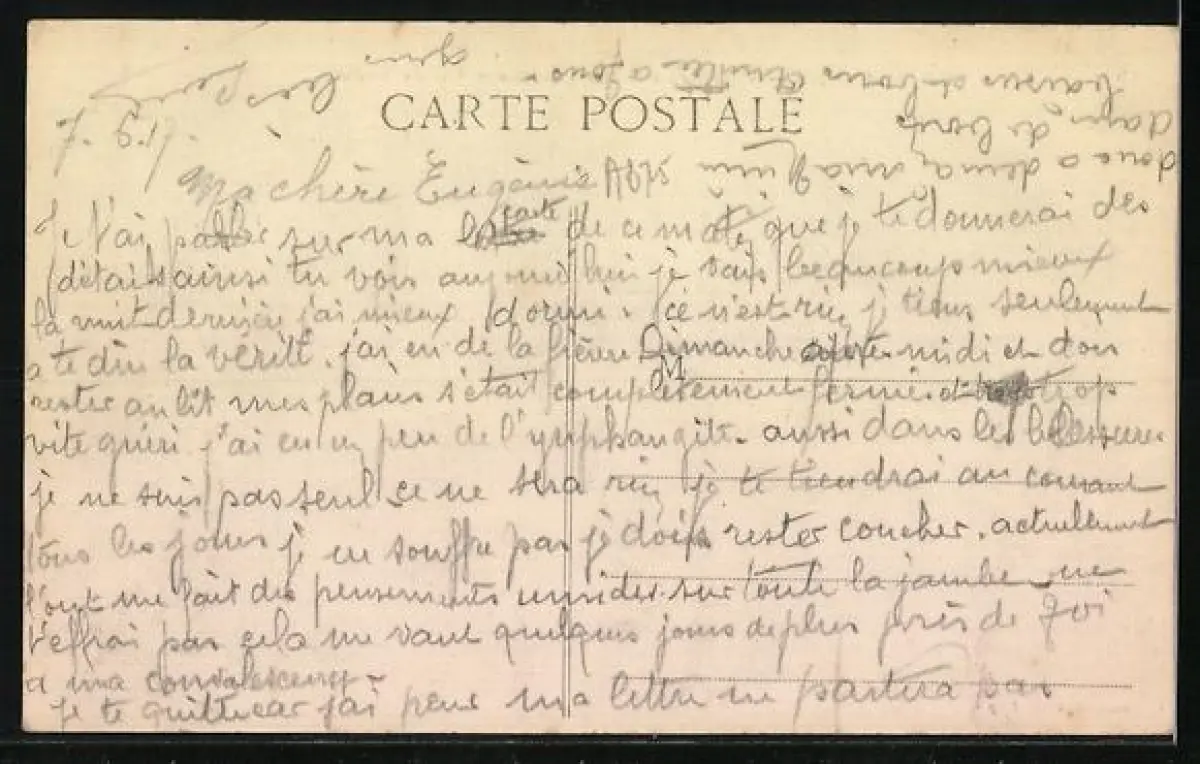 CARTE POSTALE
7. 9. 17.
Ma chère Eugènie
Je t'ai parler sur ma carte de ce matin que je te donnerai des
détails ainsi tu vois aujourd'hui je vais beaucoup mieux
la nuit dernière j'ai mieux dormi. ce n'est rien je tiens seulement
a te dire la vérité. j'ai eu de la fièvre Dimanche après midi et dois
rester au lit mes plaies s'était complètement fermés et trop
vite guéri j'ai eu un peu de l'ymphangite. aussi dans les blessures
je ne suis pas seul ce ne sera rien je te tiendrai au courant
tous les jours je ne souffre pas je dois rester coucher. actuellement
l'ont me fait des pensements umides sur toute la jambe ne
t'effrai pas cela me vaut quelques jours de plus près de Toi
a ma convalescence
je te quitte car j'ai peur ma lettre ne partira pas
donc a demain
baisers et bons